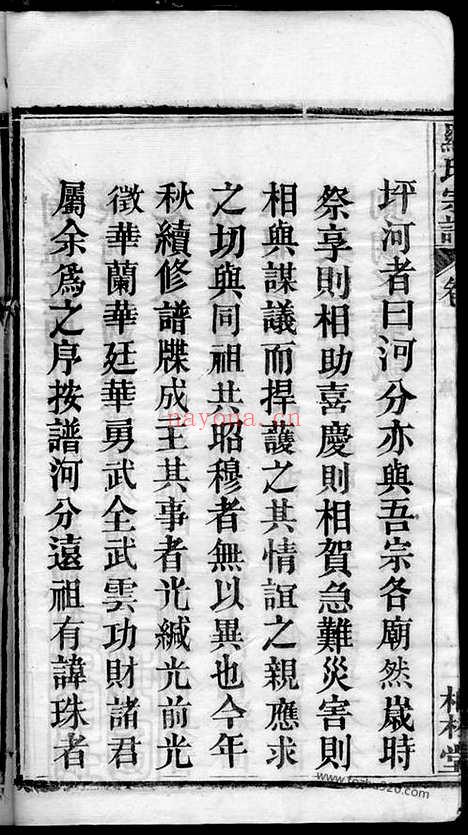 氏宗譜
卷
柏林堂
坪河者曰河分亦與吾宗各廟然歲時
祭享則相助喜慶則相賀急難災害則
相與謀議而捍護之其情誼之親應求
之切與同祖共昭穆者無以異也今年
秋續修譜牒成主其事者光緘光前光
徵華蘭華廷華勇武全武雲功財諸君
屬余爲之序按譜河分遠祖有諱珠者
nayona.cn